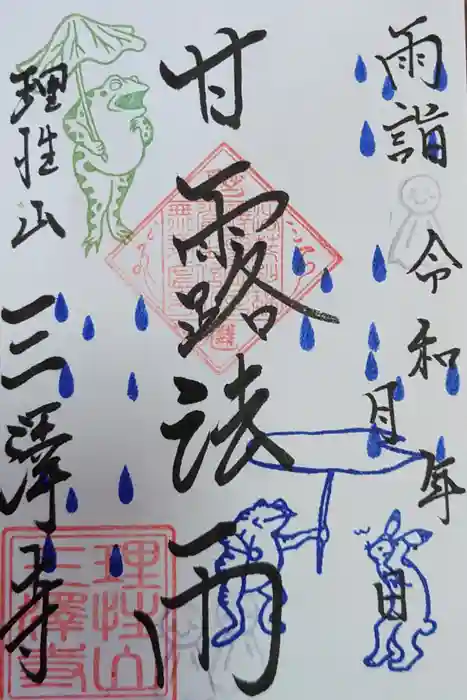 雨詣
令和 年
月 日
甘露法雨
理性山
三澤寺
理性山
三澤寺